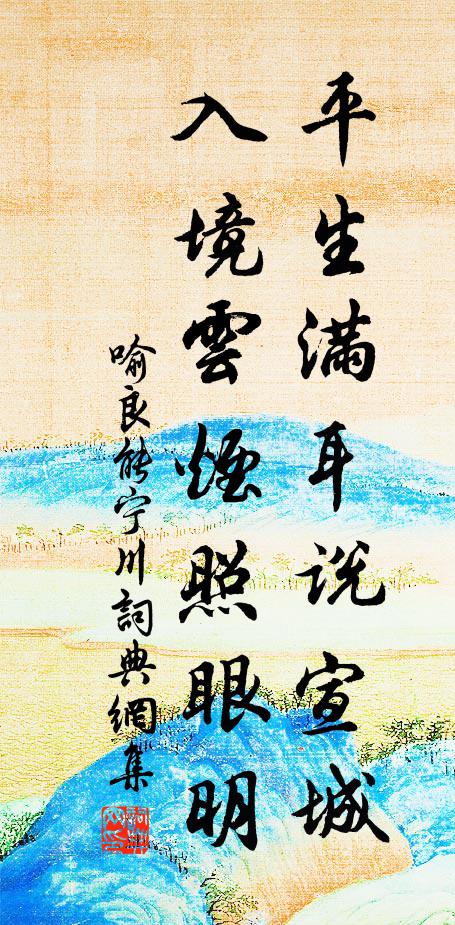 平生滿耳說宣城
入境雲煙照眼明
喻良能宁川詞典網集